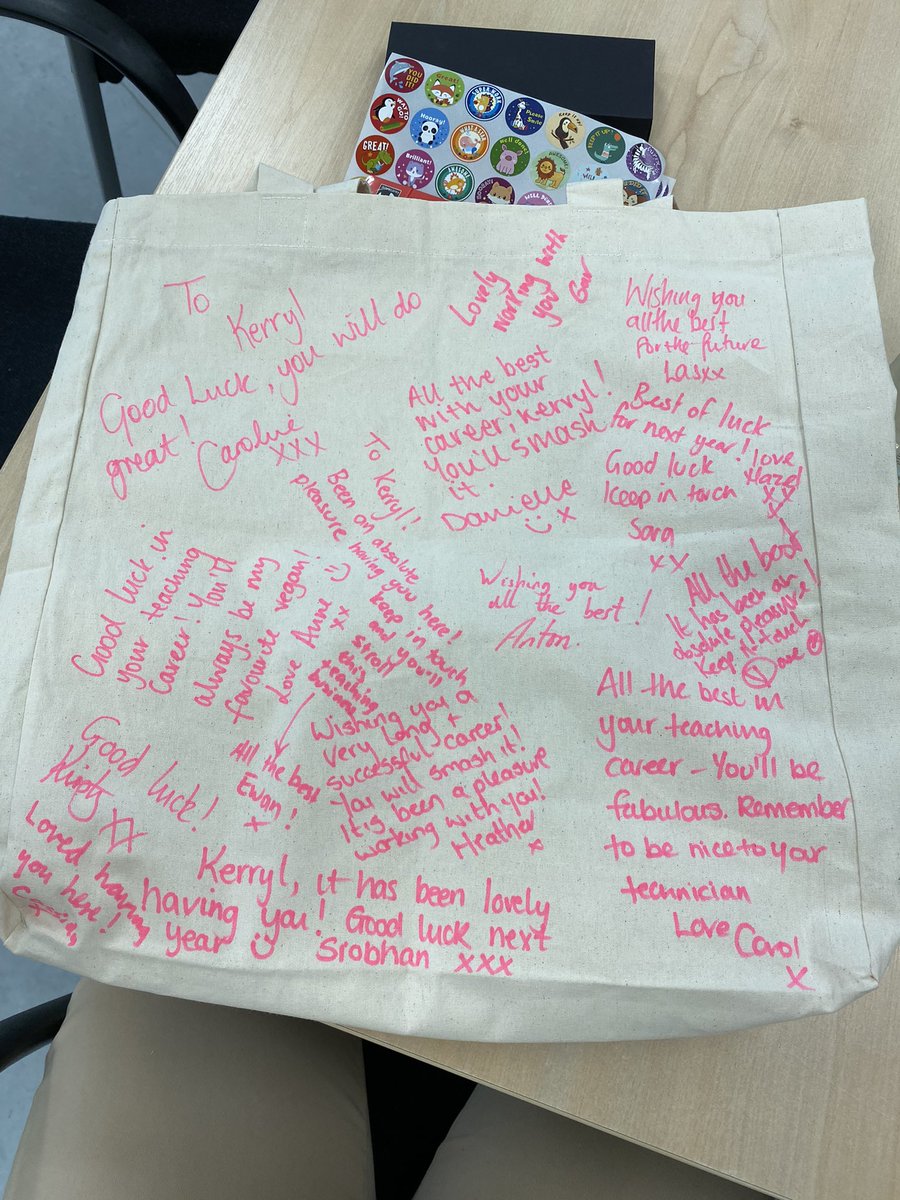 YOU DID IT!
Great!
SUPER WORK
WAY TO GO!
Hooray!
MOST LIKED
Please Smile
KEEP IT UP!
GREAT!
Brilliant!
AWESOME
Well done!
To
Kerryl
Good Luck, you will do
great!
Caroline
xxx
Lovely
working with
you
Gar
Wishing you
all the best
for the future
Lasxx
All the best
with your
career, Kerryl!
You'll smash
it.
Danielle
x
Best of luck
for next year!
love
Hazel
xx
x
Good luck
keep in touch
Sara
xx
To Kerryl!
Been an absolute
pleasure having you here!
keep in touch
and you'll
stroll
this
teaching
Wishing you
all the best!
Anton.
All the best
It has been an
absolute pleasure!
Keep in touch
Dave
Good luck in
your teaching
career! You'll
always be my
favourite vegan!
Love Anne
xx
All the best
Ewan!
x
Wishing you a
very long +
successful career!
You will smash it!
It is been a pleasure
working with you!
Heather
x
All the best in
your teaching
career - You'll be
fabulous. Remember
to be nice to your
technician
Love Carol
x
Good luck!
Kirsty xx
Loved having
you here!
Kerryl, it has been lovely
having you! Good luck next
year
Siobhan xxx